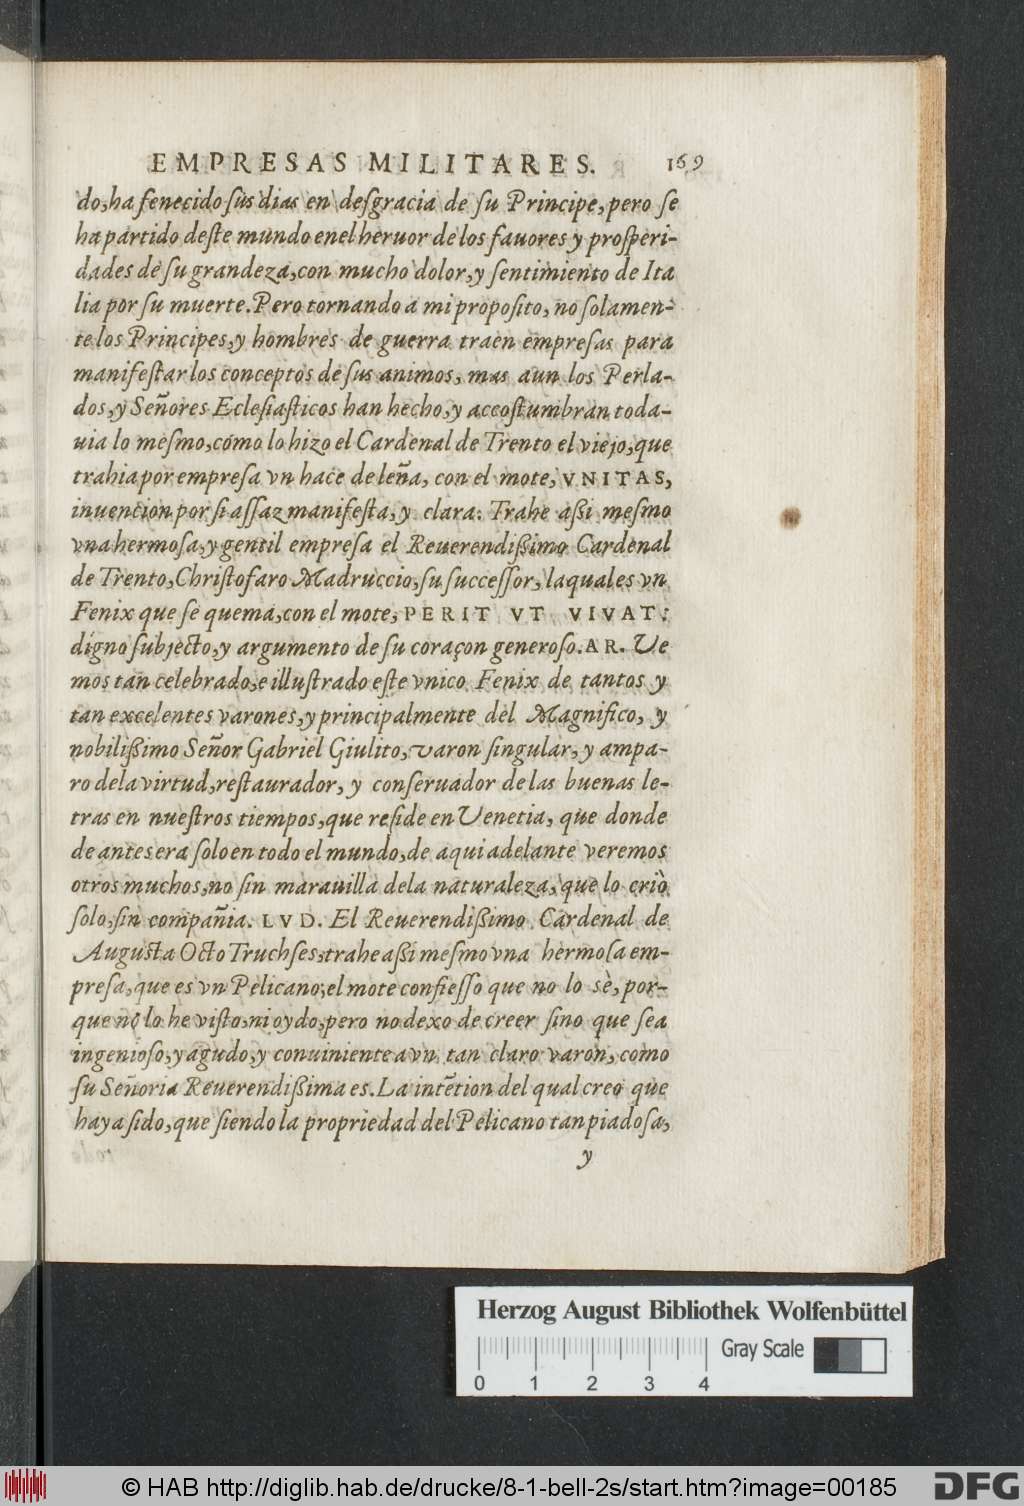 EMPRESAS MILITARES. 169
do,ha fenecido ſus dias en deſgracia de ſu Principe,pero ſe
ha partido deſte mundo enel heruor de los fauores y proſperi-
dades de ſu grandeza,con mucho dolor,y ſentimiento de Ita
lia por ſu muerte.Pero tornando a mi propoſito, no ſolamen-
te los Principes,y hombres de guerra traen empreſas para
manifeſtar los conceptos de ſus animos, mas aun los Perla-
dos,y Señores Ecleſiaſticos han hecho,y accoſtumbran toda-
uia lo meſmo,como lo hizo el Cardenal de Trento el viejo,que
trahia por empreſa vn hace de leña, con el mote, VNITAS,
inuencion por ſi aſſaz manifeſta,y clara: Trahe aßi meſmo
vna hermoſa,y gentil empreſa el Reuerendißimo Cardenal
de Trento,Chriſtofaro Madruccio,ſu ſucceſſor, laqual es vn
Fenix que ſe quema,con el mote, PERIT VT VIVAT:
digno ſubjecto,y argumento de ſu coraçon generoſo.AR. Ve
mos tan celebrado,e illuſtrado eſte vnico Fenix de tantos y
tan excelentes varones,y principalmente del Magnifico, y
nobilißimo Señor Gabriel Giulito,varon ſingular,y ampa-
ro dela virtud,reſtaurador, y conſeruador de las buenas le-
tras en nueſtros tiempos,que reſide en Venetia, que donde
de antes era ſolo en todo el mundo,de aqui adelante veremos
otros muchos,no ſin marauilla dela naturaleza,que lo criò
ſolo,ſin compañia. LVD. El Reuerendißimo Cardenal de
Auguſta Octo Truchſes,trahe aßi meſmo vna hermoſa em-
preſa,que es vn Pelicano;el mote confieſſo que no lo sè, por-
que no lo he viſto,ni oydo,pero no dexo de creer ſino que ſea
ingenioſo,y agudo,y conuiniente a vn tan claro varon,como
ſu Señoria Reuerendißima es.La intẽtion del qual creo que
haya ſido,que ſiendo la propriedad del Pelicano tan piadoſa,
y
Herzog August Bibliothek Wolfenbüttel
Gray Scale
0 1 2 3 4
© HAB http://diglib.hab.de/drucke/8-1-bell-2s/start.htm?image=00185
DFG